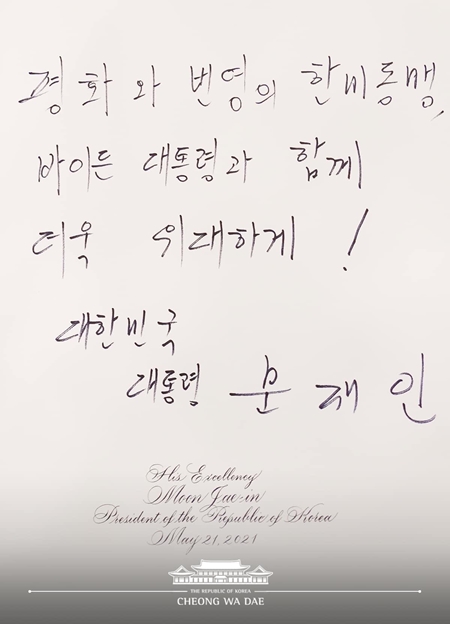 평화와 번영의 한미동맹,
바이든 대통령과 함께
더욱 위대하게!
대한민국
대통령 문재인
His Excellency
Moon Jae-in
President of the Republic of Korea
May 21, 2021
THE REPUBLIC OF KOREA
CHEONG WA DAE